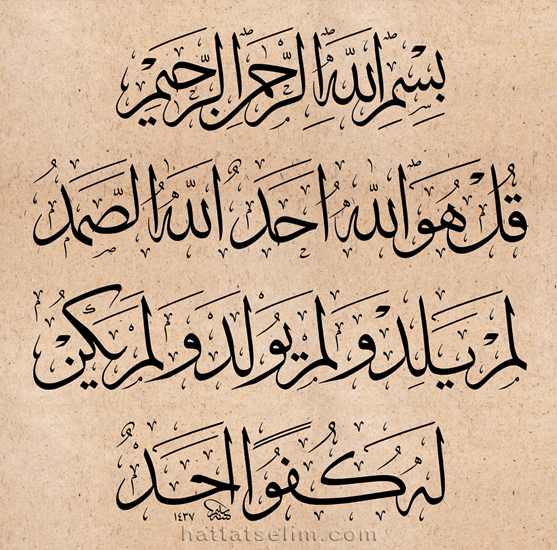 بِسْمِ اللهِ الرَّحْمٰنِ الرَّحِيْمِ
قُلْ هُوَ اللهُ اَحَدٌ اَللهُ الصَّمَدُ
لَمْ يَلِدْ وَلَمْ يُولَدْ وَلَمْ يَكُنْ
لَهُ كُفُوًا اَحَدٌ
١٤٣٧
hattatselim.com